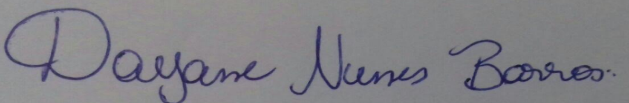 Dayane Nunes Barros.